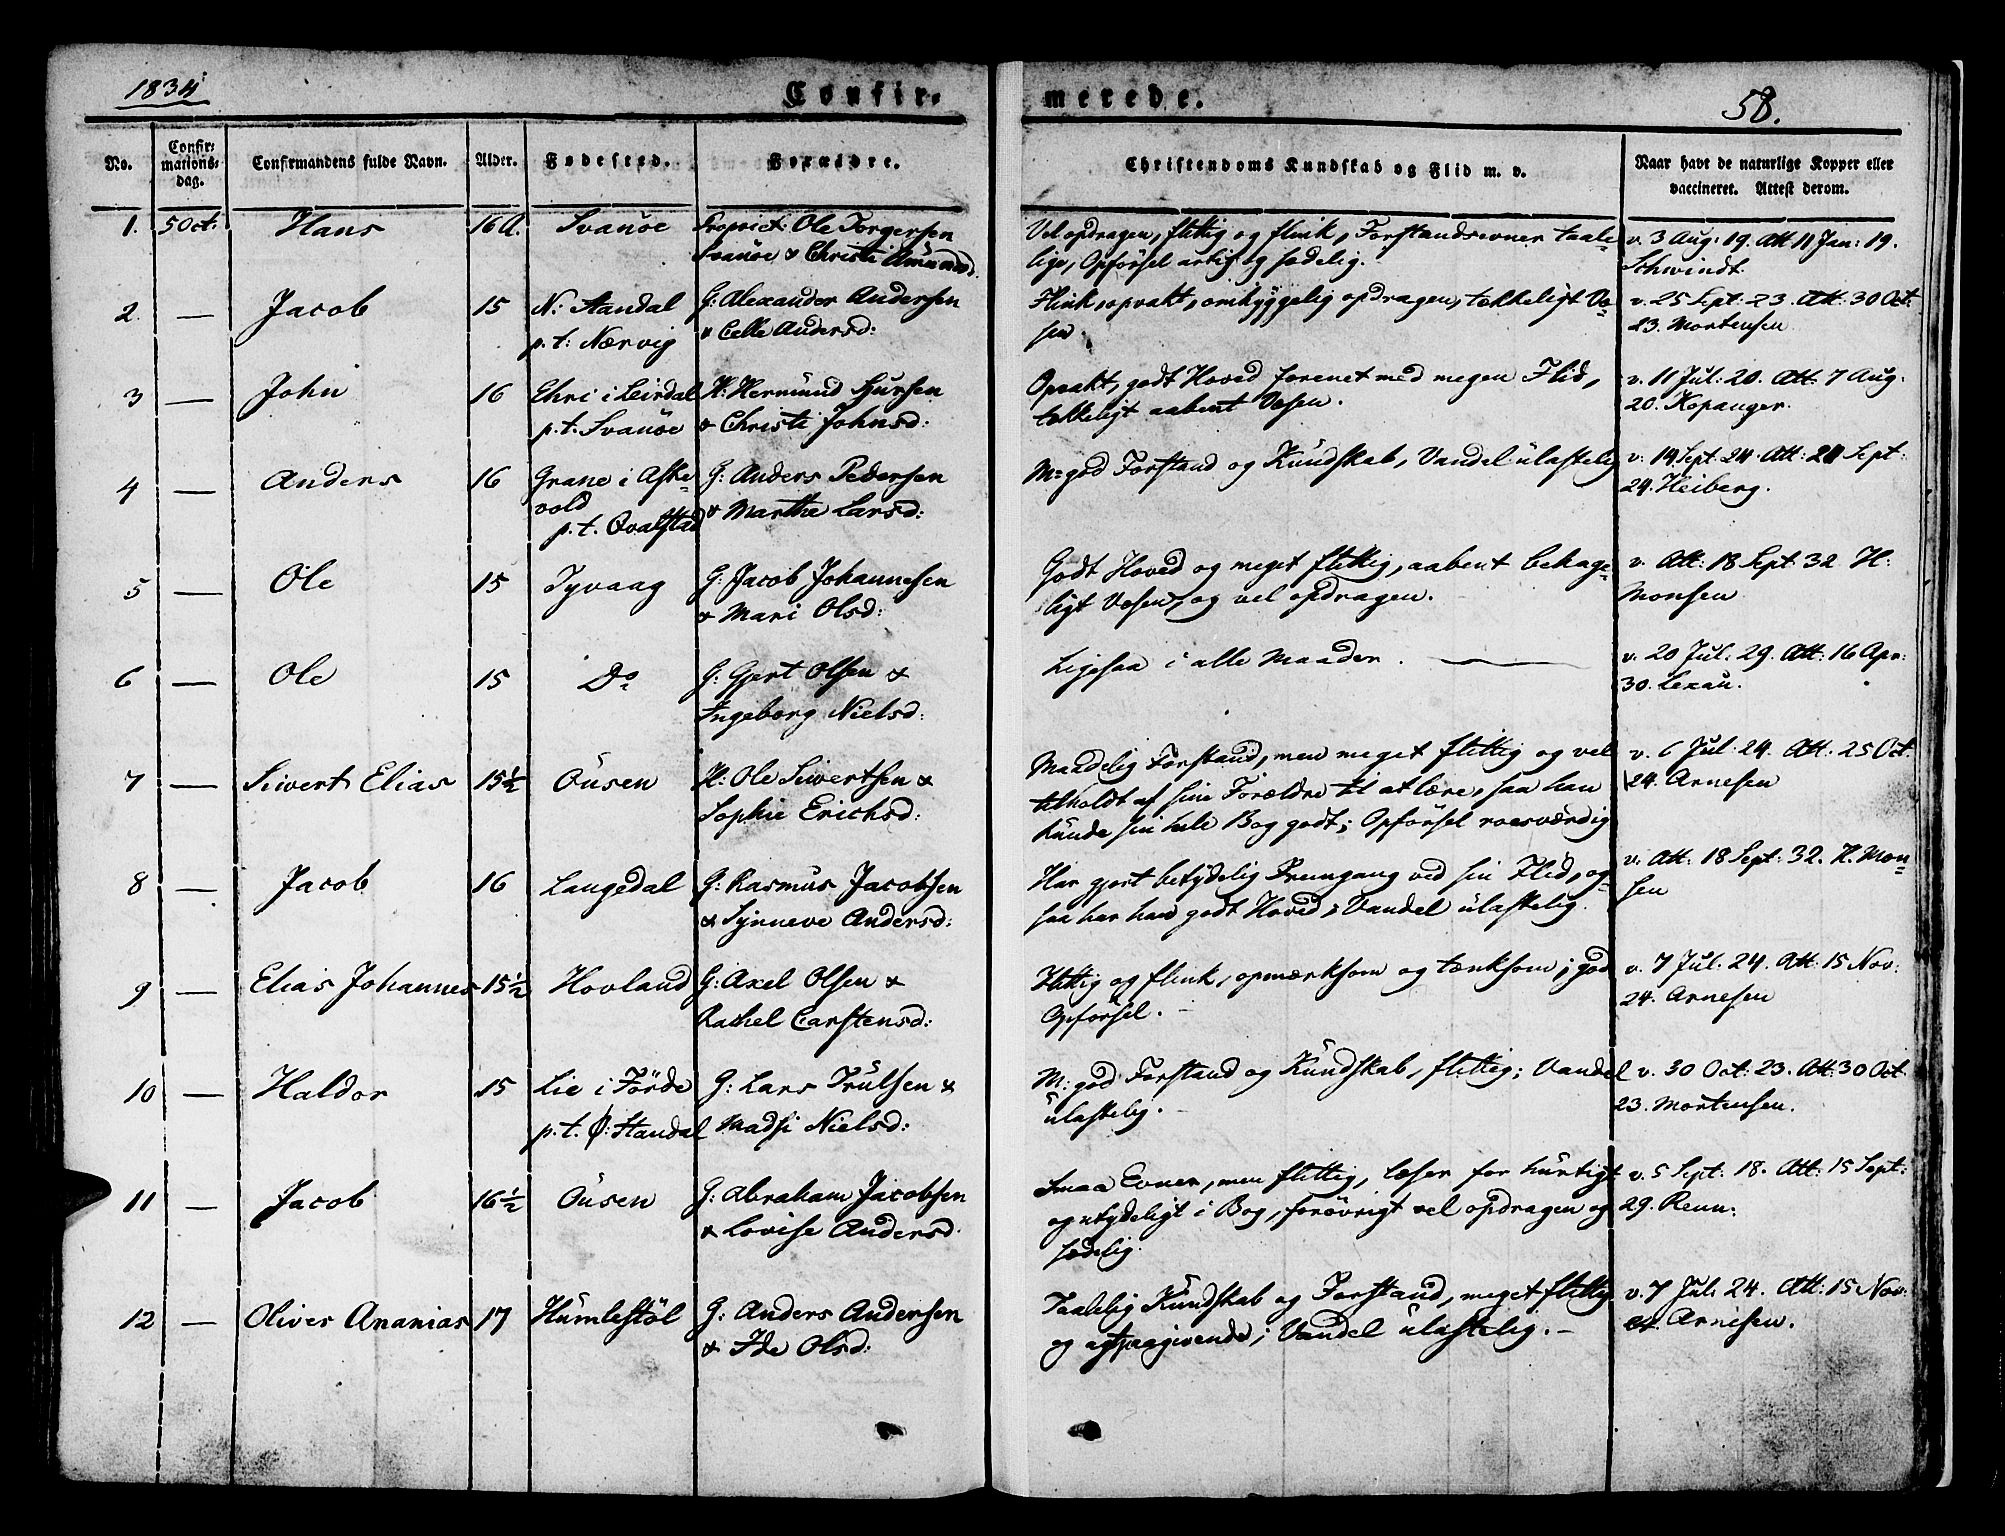 1834
Confir-
merede.
58.
No.
Confir-
mations-
dag.
Confirmandens fulde Navn.
Alder.
Fødested.
Forældre.
Christendoms Kundskab og Flid m. v.
Naar havt de naturlige Kopper eller
vaccineret. Attest derom.
1. 5 Oct: Hans 16 A. Svanöe Propriet: Ole Torgersen
Svanöe & Christi Amunds.
Vel opdragen, flittig og flink, Forstandsevner taale-
lige, Opförsel artig og sædelig.
v. 3 Aug: 19. Att 11 Jan: 19.
Schwindt.
2. — Jacob 15 N: Standal G: Alexander Andersen
p.t: Nærvig & Celle Andersd:
Flink, opvakt, omhyggelig opdragen, tækkeligt Væ-
sen
v. 25 Sept: 23. Att: 30 Oct:
23. Mortensen
3 — John 16 Ehri i Leirdal H: Hermund Sjursen
p.t. Svanöe & Christi Johnsd:
Opvakt, godt Hoved forenet med megen Flid,
tækkeligt aabent Væsen.
v. 11 Jul: 20. Att: 7 Aug:
20. Kopanger.
4 — Anders 16 Grane i Aske- G: Anders Pedersen
vold & Marthe Larsd:
p.t. Qvalstad
M: god Forstand og Kundskab, Vandel ulastelig
v. 19 Sept: 24. Att: 21 Sept:
24. Heiberg.
5 — Ole 15 Tyvaag G: Jacob Johannesen
& Mari Olsd:
Godt Hoved og meget flittig, aabent behage-
ligt Væsen, og vel opdragen.
v. Att: 18 Sept: 32 H:
Monsen
6 — Ole 15 Do G: Gjert Olsen &
Ingeborg Nielsd:
Ligesaa i alle Maader.
v. 20 Jul: 29. Att: 16 Apr:
30. Lexau.
7 — Sivert Elias 15½ Öusen H: Ole Sivertsen &
Sophie Erichsd:
Maadelig Forstand, men meget flittig og vel
tilholdt af sine Forældre til at lære, saa han
kunde sin hele Bog godt; Opförsel roesværdig
v. 6 Jul: 24. Att. 25 Oct.
24. Arnesen
8 — Jacob 16 Langedal G: Rasmus Jacobsen
& Synneve Andersd:
Har gjort betydelig Fremgang ved sin Flid, og-
saa har han godt Hoved; Vandel ulastelig.
v. Att: 18 Sept: 32. H. Mon-
sen
9 — Elias Johannes 15½ Hovland G: Axel Olsen &
Rachel Carstensd:
Flittig og flink, opmærksom og tænksom; god
Opförsel.
v. 7 Jul: 24. Att: 15 Nov:
24. Arnesen
10 — Haldor 15 Lie i Förde G: Lars Trulsen &
p.t. Ø: Standal Madsi Nielsd:
M: god Forstand og Kundskab, flittig; Vandel
ulastelig.
v. 30 Oct: 23. Att: 30 Oct:
23. Mortensen.
11 — Jacob 16½ Öusen G: Abraham Jacobsen
& Lovise Andersd.
Smaa Evner, men flittig, læser for hurtigt
og utydeligt i Bog, forövrigt vel opdragen og
sædelig.
v. 5 Sept: 18. Att: 15 Sept:
29. Renn:
12 — Oliver Ananias 17 Humlestöl G: Anders Andersen
& Ide Olsd:
Taalelig Kundskab og Forstand, meget flittig
og agtpaagivende; Vandel ulastelig.
v. 7 Jul: 24. Att: 15 Nov:
Arnesen.